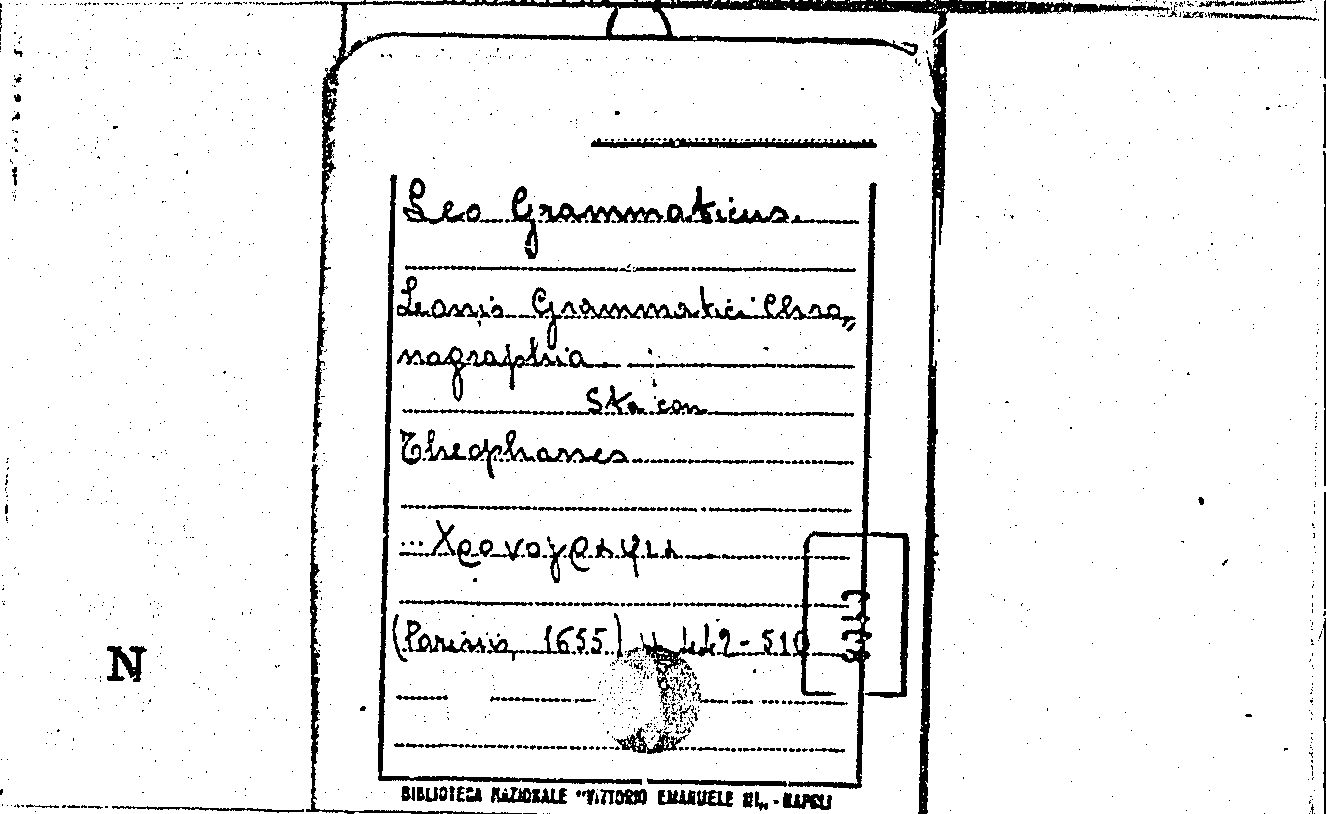 Leo Grammaticus.
Leonis Grammatici Chro„
nographia
Sta con
Theophanes
... Χρονογραφια
(Parisiis, 1655) 449-510
N
BIBLIOTECA NAZIONALE "VITTORIO EMANUELE III„ - NAPOLI